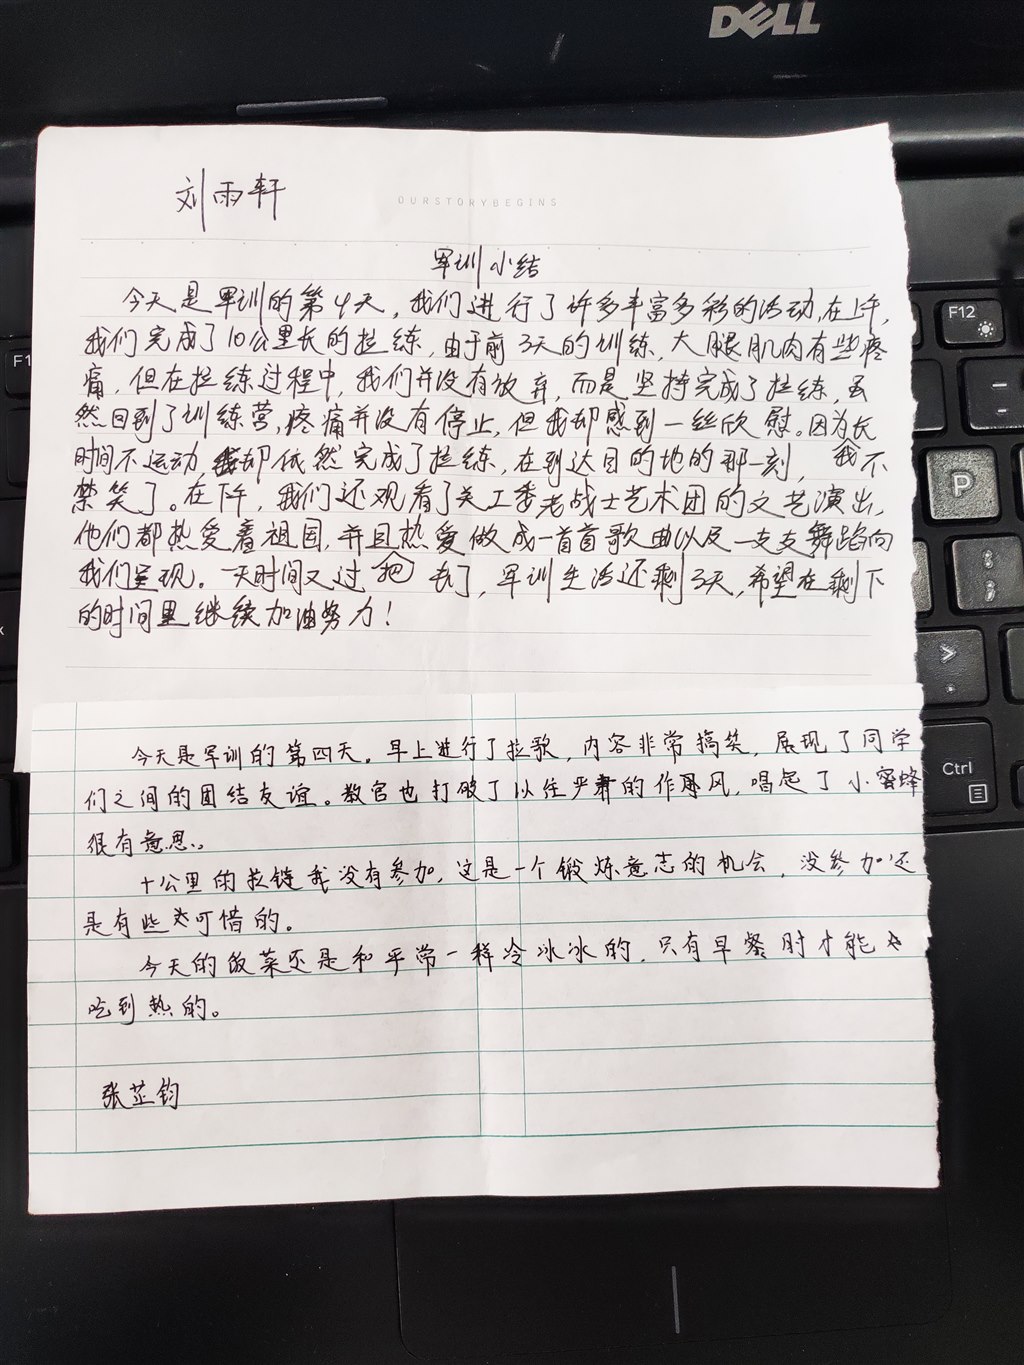 DELL
刘雨轩
OURSTORYBEGINS
军训小结
今天是军训的第4天,我们进行了许多丰富多彩的活动,在上午,
我们完成了10公里长的拉练,由于前3天的训练,大腿肌肉有些疼
痛,但在拉练过程中,我们并没有放弃,而是坚持完成了拉练,虽
然回到了训练营,疼痛并没有停止,但我却感到一丝欣慰。因为长
时间不运动,却依然完成了拉练,在到达目的地的那一刻,我不
禁笑了。在下午,我们还观看了关工委老战士艺术团的文艺演出,
他们都热爱着祖国,并且把热爱做成一首首歌曲以及一支支舞蹈向
我们呈现。一天时间又过去了,军训生活还剩3天,希望在剩下
的时间里继续加油努力!
今天是军训的第四天。早上进行了拉歌,内容非常搞笑,展现了同学
们之间的团结友谊。教官也打破了以往严肃的作风,唱起了小蜜蜂
很有意思。
十公里的拉链我没有参加,这是一个锻炼意志的机会,没参加还
是有些可惜的。
今天的饭菜还是和平常一样冷冰冰的,只有早餐时才能
吃到热的。
张芷钧
F12
P
;
>
.
Ctrl